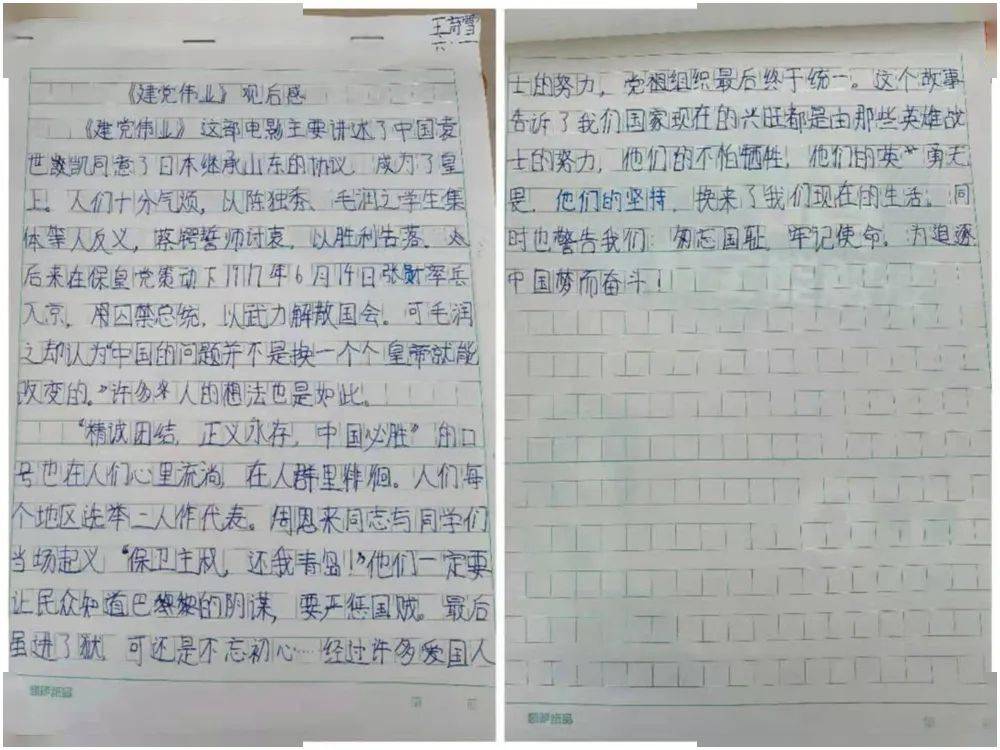 王诗雪
六.一
《建党伟业》观后感
《建党伟业》这部电影主要讲述了中国袁
世凯同意了日本继承山东的协议，成为了皇
上。人们十分气愤，以陈独秀、毛润之学生集
体等人反义，蔡锷誓师讨袁，以胜利告落。
后来在保皇党策动下1917年6月14日张勋率兵
入京，用囚禁总统，以武力解散国会。可毛润
之却认为“中国的问题并不是换一个个皇帝就能
改变的。”许多人的想法也是如此。
“精诚团结，正义永存，中国必胜”的口
号也在人们心里流淌，在人群里徘徊。人们每
个地区选举二人作代表。周恩来同志与同学们
当场起义“保卫主权，还我青岛！”他们一定要
让民众知道巴黎的阴谋，要严惩国贼。最后
虽进了狱，可还是不忘初心……经过许多爱国人
士的努力，党祖组织最后终于统一。这个故事
告诉了我们国家现在的兴旺都是由那些英雄战
士的努力，他们的不怕牺牲，他们的英勇无
畏，他们的坚持，换来了我们现在的生活；同
时也警告我们：勿忘国耻，牢记使命，为追逐
中国梦而奋斗！
第 页
第